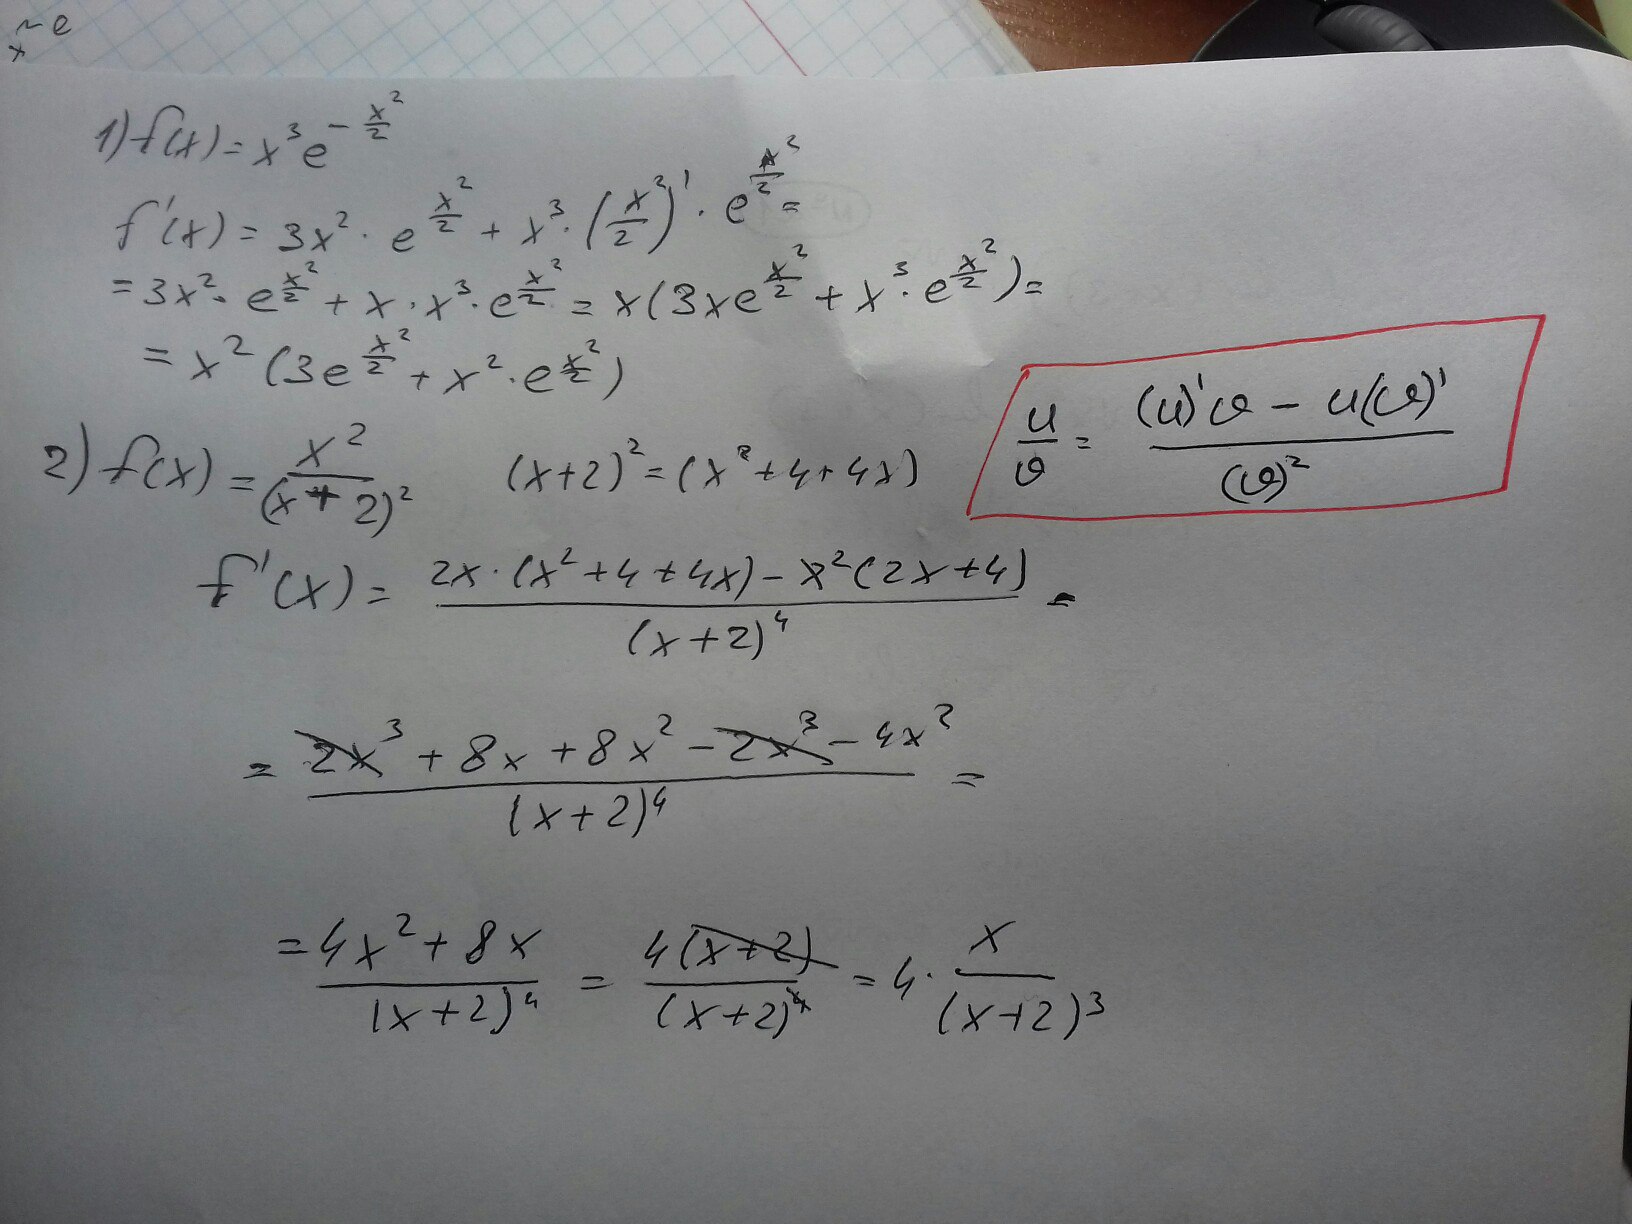 ~ e
x
1) f(x) = x³e^(-x²/2)
f'(x) = 3x² · e^(x²/2) + x³ · (x²/2)' · e^(x²/2) =
= 3x² · e^(x²/2) + x · x³ · e^(x²/2) = x(3xe^(x²/2) + x³ · e^(x²/2)) =
= x² (3e^(x²/2) + x² · e^(x²/2))
u/v = ((u)'v - u(v)')/(v)²
2) f(x) = x²/(x+2)² (x+2)² = (x²+4+4x)
f'(x) = (2x · (x²+4+4x) - x²(2x+4))/(x+2)⁴ =
= (2x³ + 8x + 8x² - 2x³ - 4x²)/(x+2)⁴ =
= (4x² + 8x)/(x+2)⁴ = 4(x+2)/(x+2)⁴ = 4 · x/(x+2)³